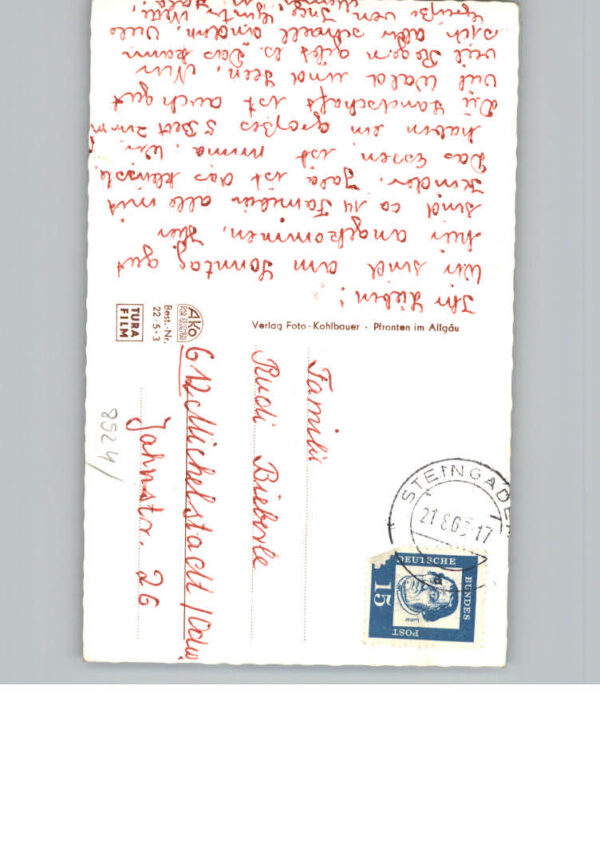 Ihr Lieben!
Wir sind am Sonntag gut
hier angekommen. Hier
sind ca 14 Familien alle mit
Kinder. Jala ist das kleinste.
Das Essen ist prima. Wir
haben ein großes 5 Bett Zimm.
Die Landschaft ist auch gut
Viel Wald und Seen, Nur
viel Regen gibt es. Das kann
sich aber schnell ändern. Viele
Grüße von Inge, Günter, Willi,
Verlag Foto-Kohlbauer · Pfronten im Allgäu
Ako
Best.-Nr.
22·5·3
TURA
FILM
Familie
Rudi Bieberle
612 Michelstadt/Odw
Jahnstr. 26
8924/
STEINGADEN
21.8.63-17
a
DEUTSCHE
BUNDES
POST
15
Luther